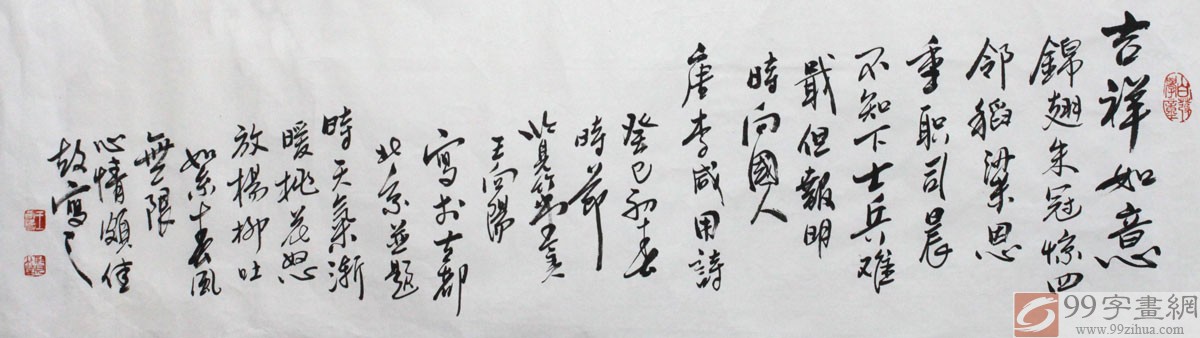 吉祥如意
錦翅朱冠惊四
邻稻粱恩
重职司晨
不知下士兵难
戢但報明
時向國人
唐李咸用詩
癸巳初春
時節
王向陽
寫於古都
北京並題
時天氣漸
暖桃花怒
放楊柳吐
絮春風
無限
心情頗佳
故寫之
99字畫網
www.99zihua.com